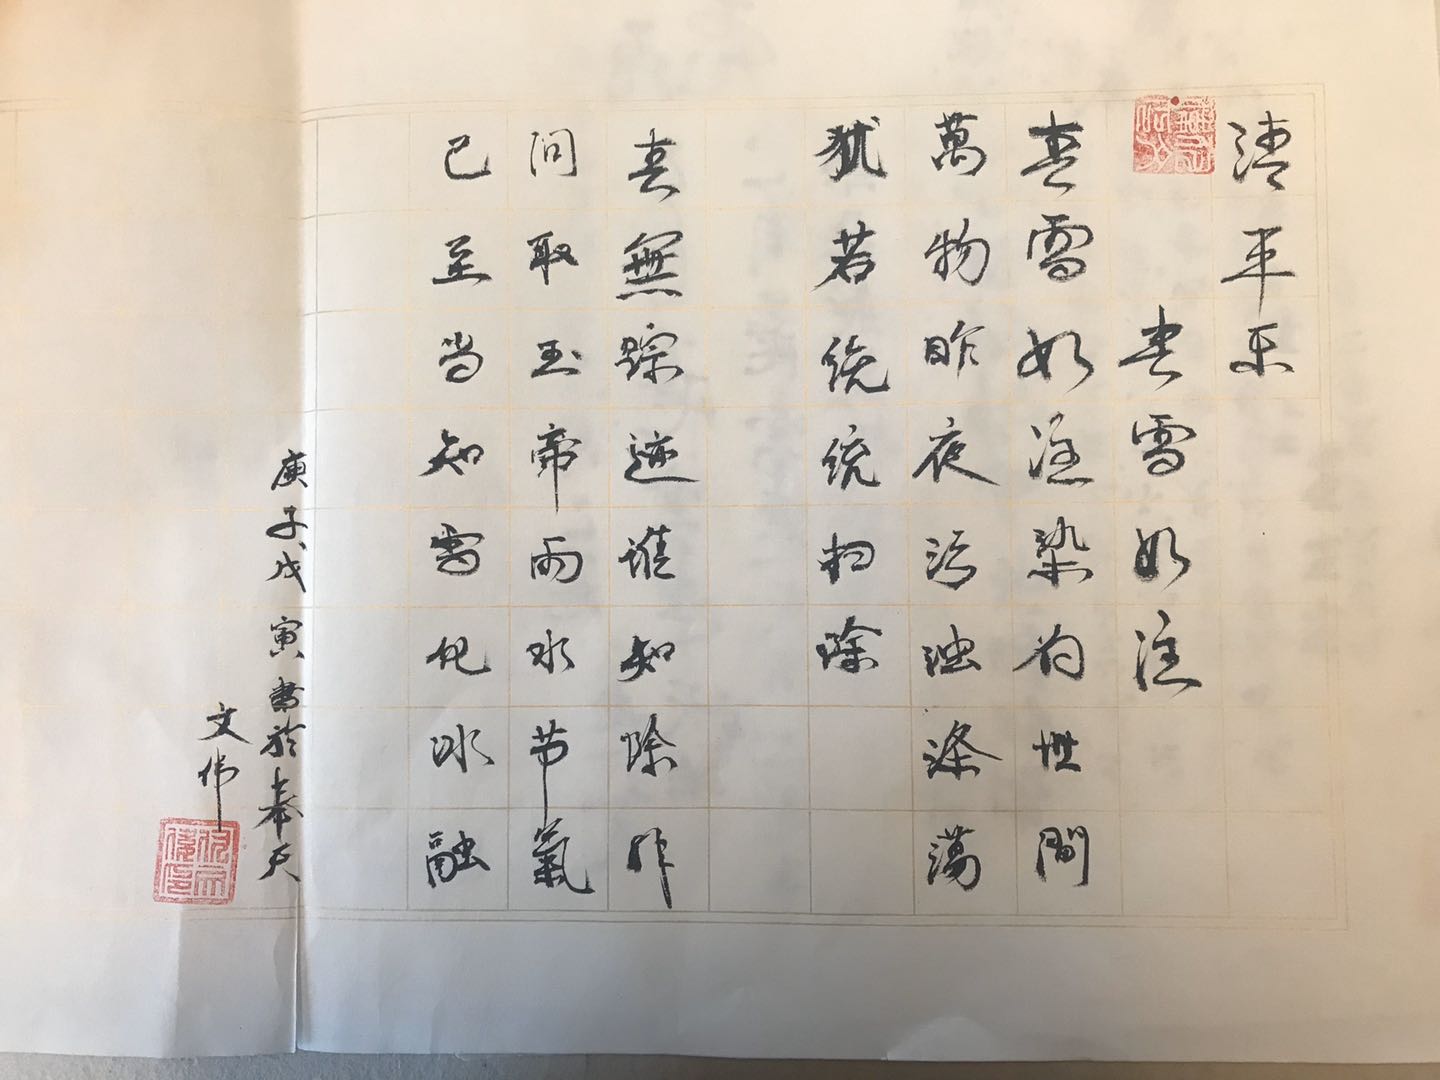 清平乐
春雪如注
春雪如注染世間
萬物昨夜污浊涤蕩
犹若统统扫除
春無踪迹谁知除非
问取玉帝雨水节氣
已至当知雪化冰融
庚子戊寅書於奉天
文伟